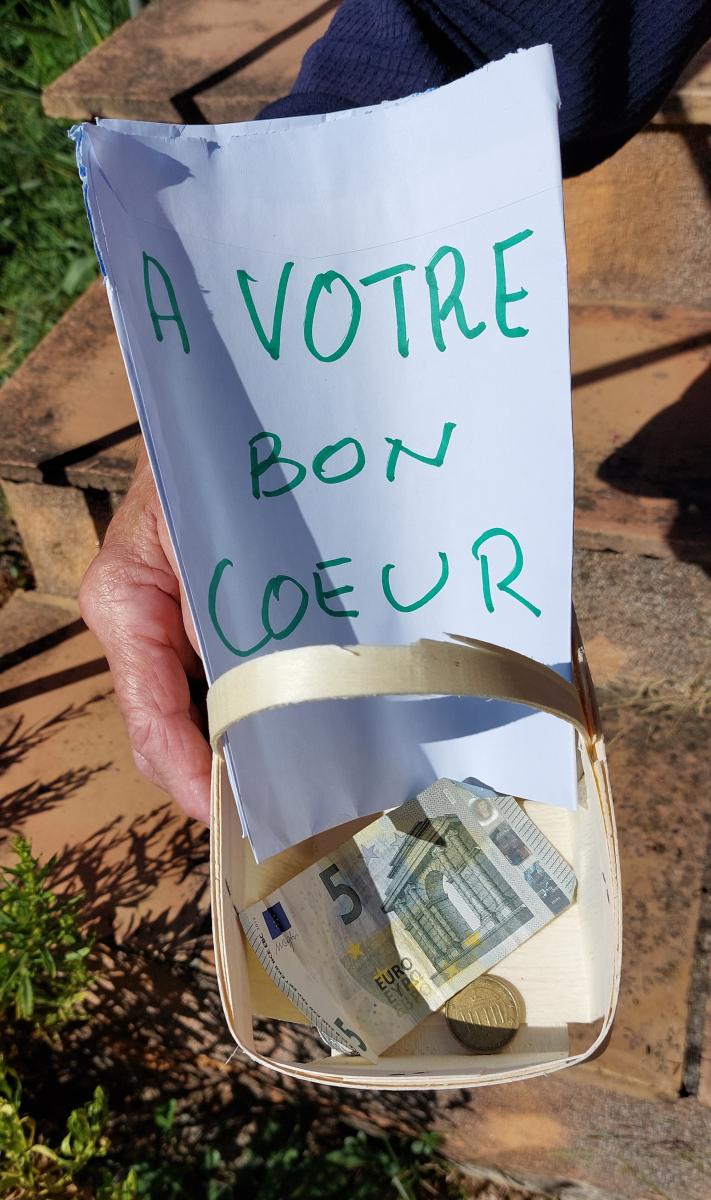 A VOTRE
BON
COEUR
5
EURO
5